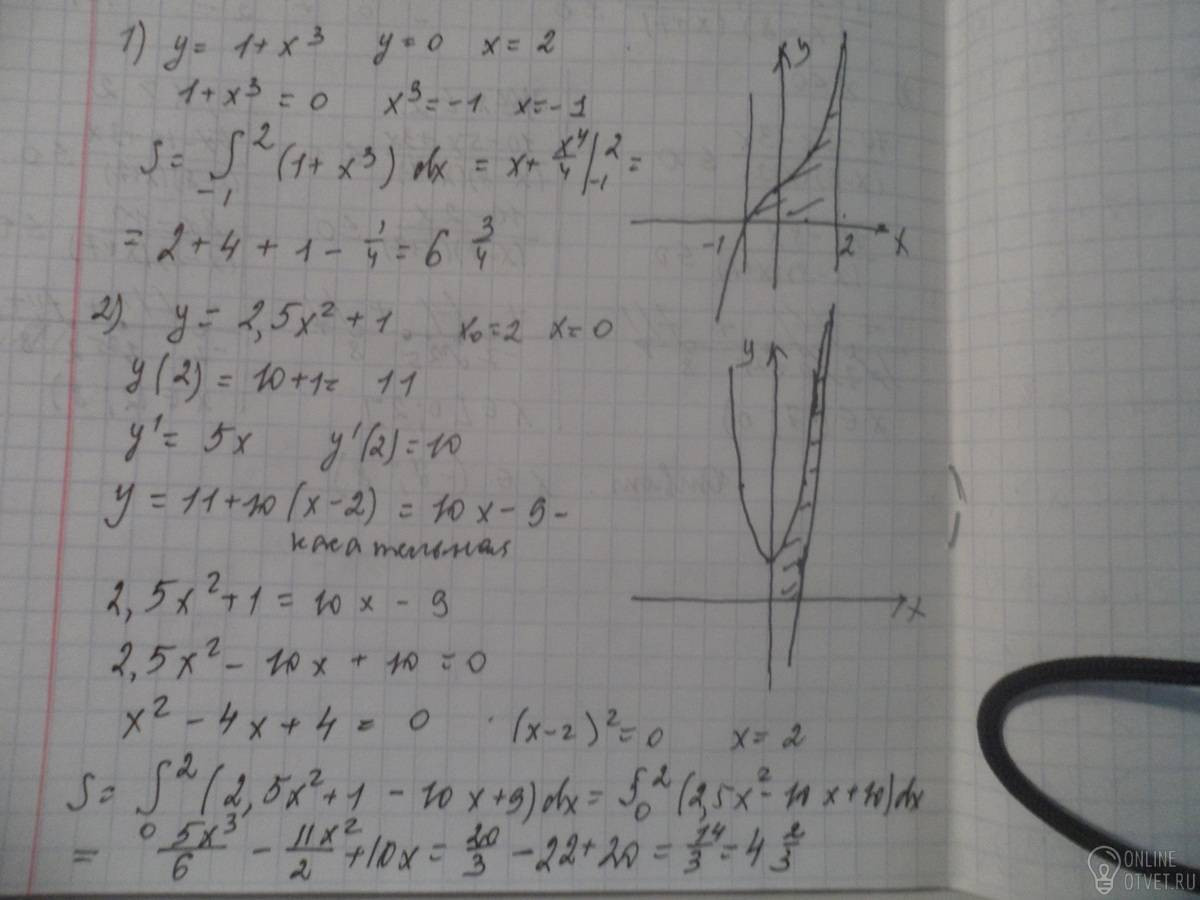 1) y = 1+x³ y=0 x=2
1+x³=0 x³=-1 x=-1
S= ∫₋₁² (1+x³) dx = x+ x⁴/4 |₋₁² =
= 2+4+1-1/4 = 6 3/4
y
-1 2 x
2) y= 2,5x²+1 x₀=2 x=0
y(2) = 10+1= 11
y'= 5x y'(2)=10
y = 11+10(x-2) = 10x-9 -
касательная
2,5x²+1=10x-9
2,5x²-10x+10=0
x²-4x+4= 0 (x-2)²=0 x=2
y
x
S= ∫₀² (2,5x²+1-10x+9)dx= ∫₀² (2,5x²-10x+10)dx
= 5x³/6 - 11x²/2 +10x= 20/3 -22+20 = 14/3 = 4 2/3
ONLINE
OTVET.RU